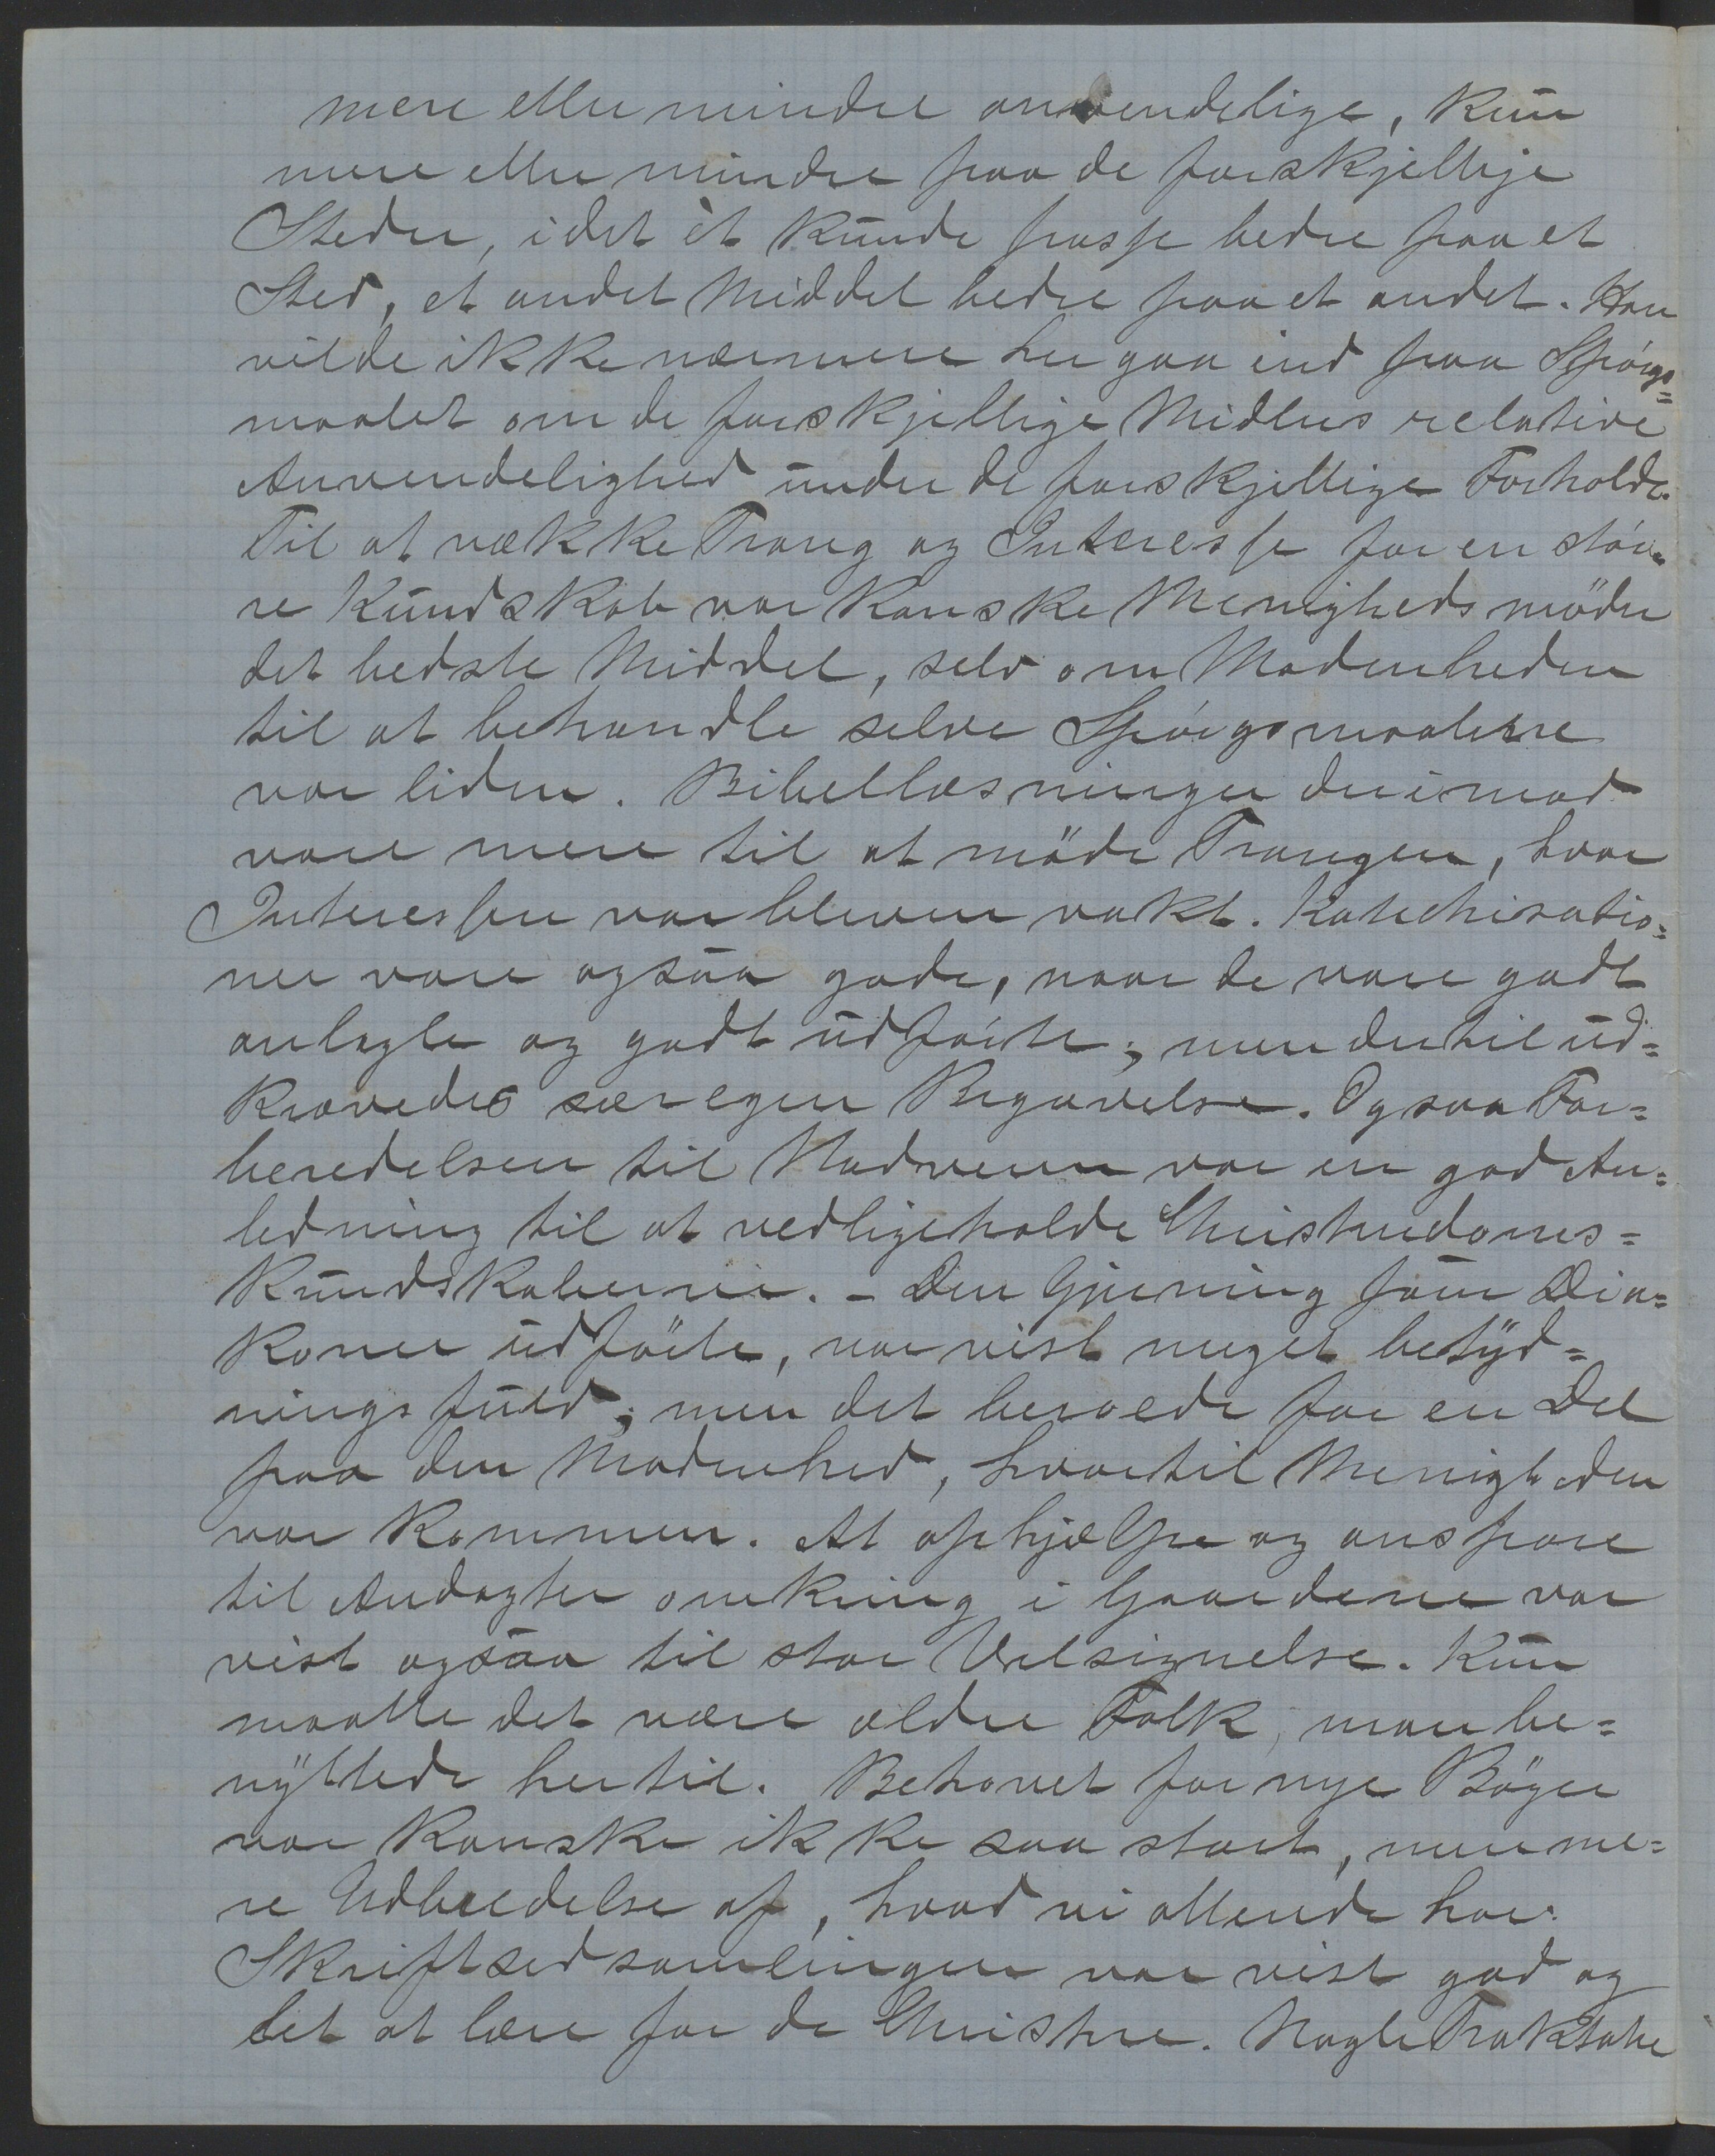 mere eller mindre anvendelige, kun
mere eller mindre paa de forskjellige
Steder, idet èt kunde passe bedre paa et
Sted, et andet Middel bedre paa et andet. Han
vilde ikke nærmere her gaa ind paa Spörgs=
maalet om de forskjellige Midlers relative
Anvendelighed under de forskjellige Forholde.
Til at vække Trang og Interesse for en stör=
re Kundskab var kanske Menighedsmöder
det bedste Middel, selv om Modenheden
til at behandle selve Spörgsmaalene
var liden. Bibellæsninger derimod
vare mere til at möde Trangen, hvor
Interessen var bleven vakt. Katechisatio=
ner vare ogsaa gode, naar de vare godt
anlagte og godt udförte; men dertil ud=
krævedes særegen Begavelse. Ogsaa For=
beredelsen til Nadveren var en god An=
ledning til at vedligeholde Christendoms=
kundskaberne. – Den Gjerning som Dia=
koner udförte, var vist meget betyd=
ningsfuld; men det beroede for en Del
paa den Modenhed, hvortil Menigheden
var kommen. At ophjælpe og anspore
til Andagter omkring i Gaardene var
vist ogsaa til stor Velsignelse. Kun
maatte det være ældre Folk, man be=
nyttede hertil. Behovet for nye Böger
var kanske ikke saa stort, men me=
re Udbredelse af, hvad vi allerede har.
Skriftsedsamlingen var vist god og
let at lære for de Christne. Nogle Traktater